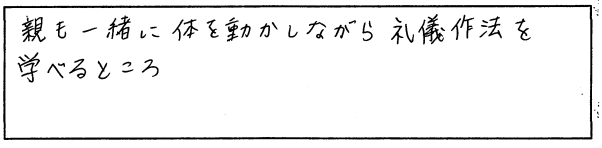 親も一緒に体を動かしながら礼儀作法を
学べるところ